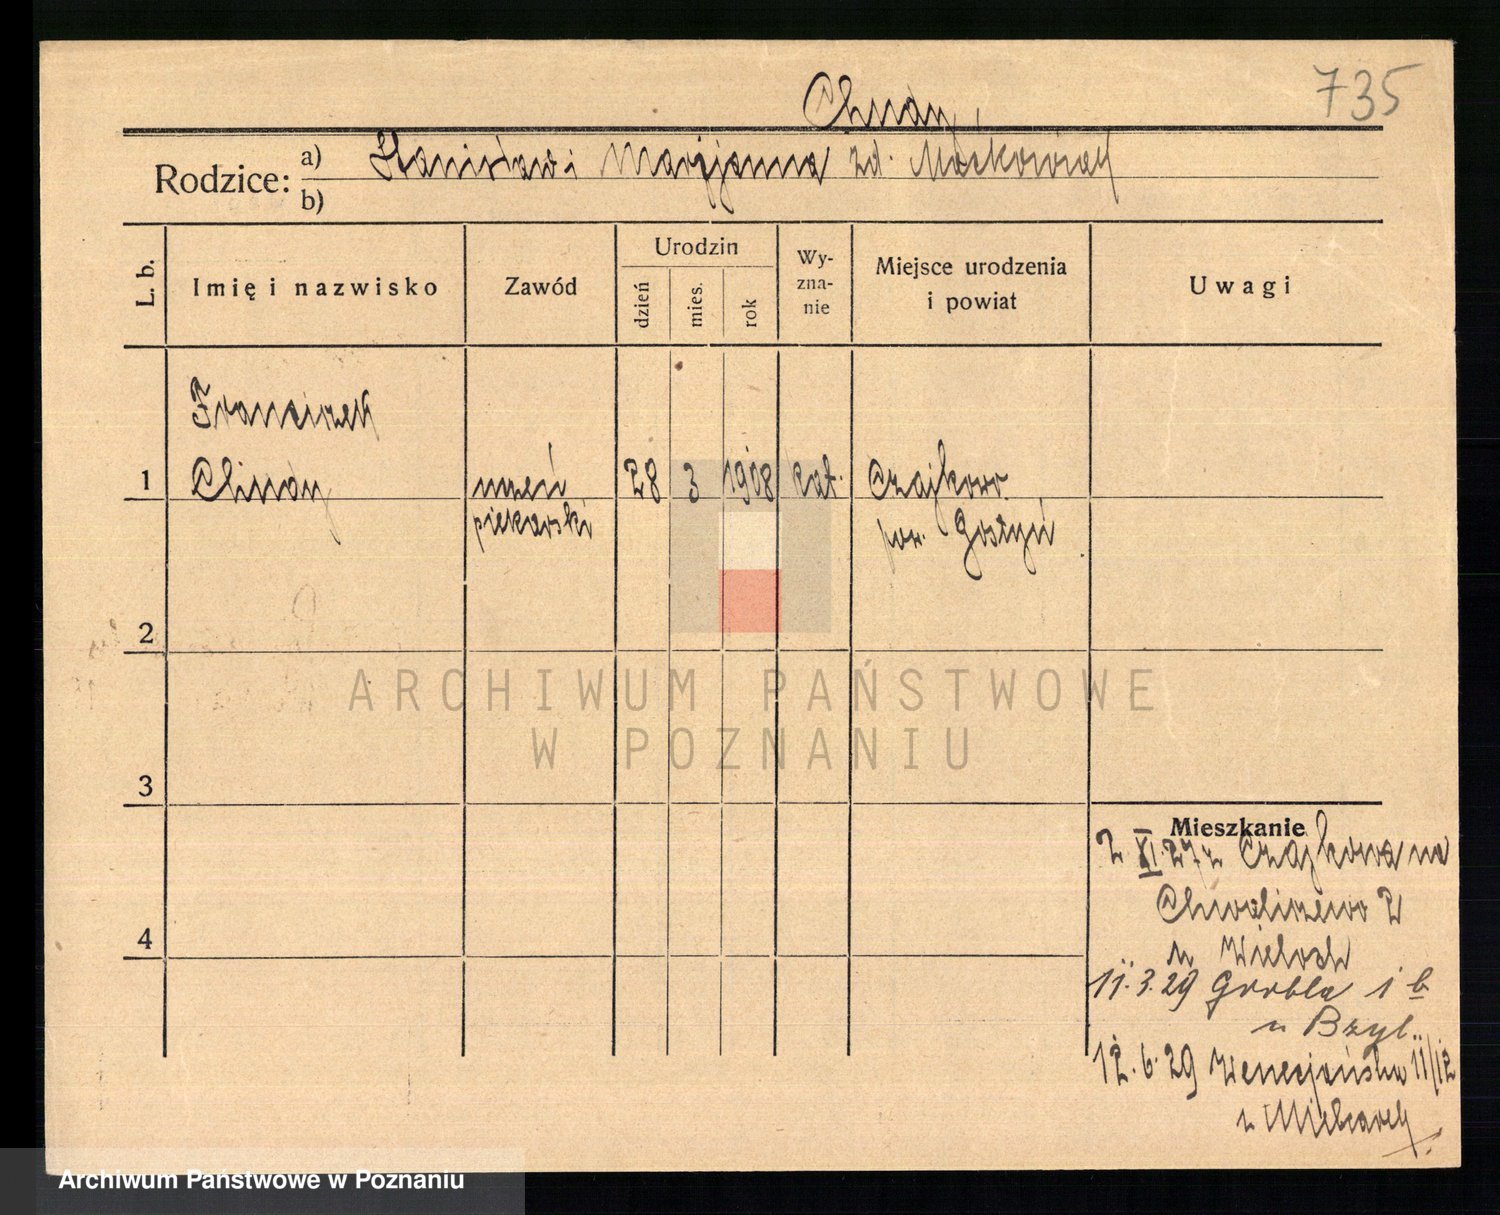 735
Chuды
Rodzice: a) Stanisław i Marjanna zd. Maćkowiak
b)
L. b.
Imię i nazwisko
Zawód
Urodzin
dzień
mies.
rok
Wy-
zna-
nie
Miejsce urodzenia
i powiat
Uwagi
Franciszek
1 uczeń 28 3 1908 kat. Czajkowo
piekarski pow. Gostyń
2
3
4
Mieszkanie
2 XI. 27 z Czajkowa na
Chwaliszewo 2
u
11. 3. 29 Grobla 1 b
u Bzyl.
12. 6. 29 Wenecjańska 11/12
u Mielcarek
ARCHIWUM PAŃSTWOWE
W POZNANIU
Archiwum Państwowe w Poznaniu